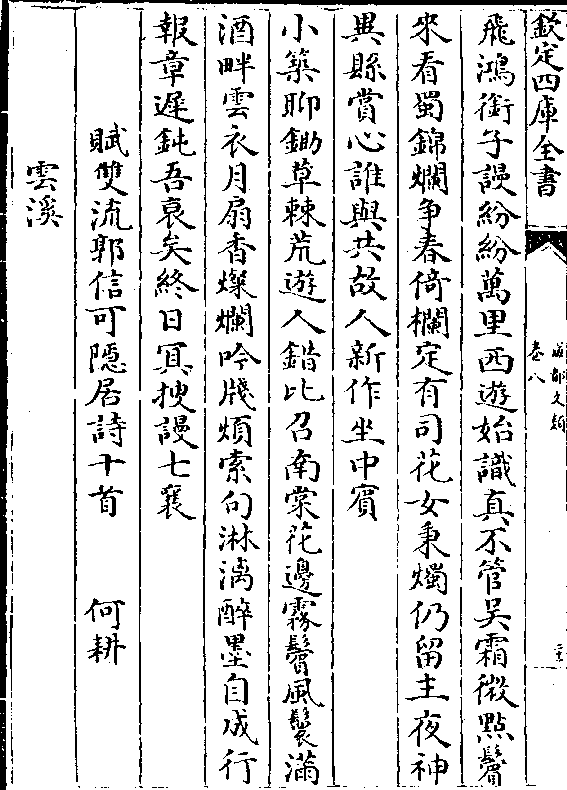 欽定四庫全書
卷八
飛鴻銜子謾紛紛萬里西遊始識真不管吳霜微點鬢
來看蜀錦爛争春倚欄定有司花女秉燭仍留主夜神
異縣賞心誰與共故人新作坐中賓
小築聊鋤草棘荒遊人錯比召南棠花邊霧鬢風鬟滿
酒畔雲衣月扇香燦爛吟牋煩索句淋漓醉墨自成行
報章遲鈍吾衰矣終日冥搜謾七襄
賦雙流郭信可隱居詩十首　何耕
雲溪